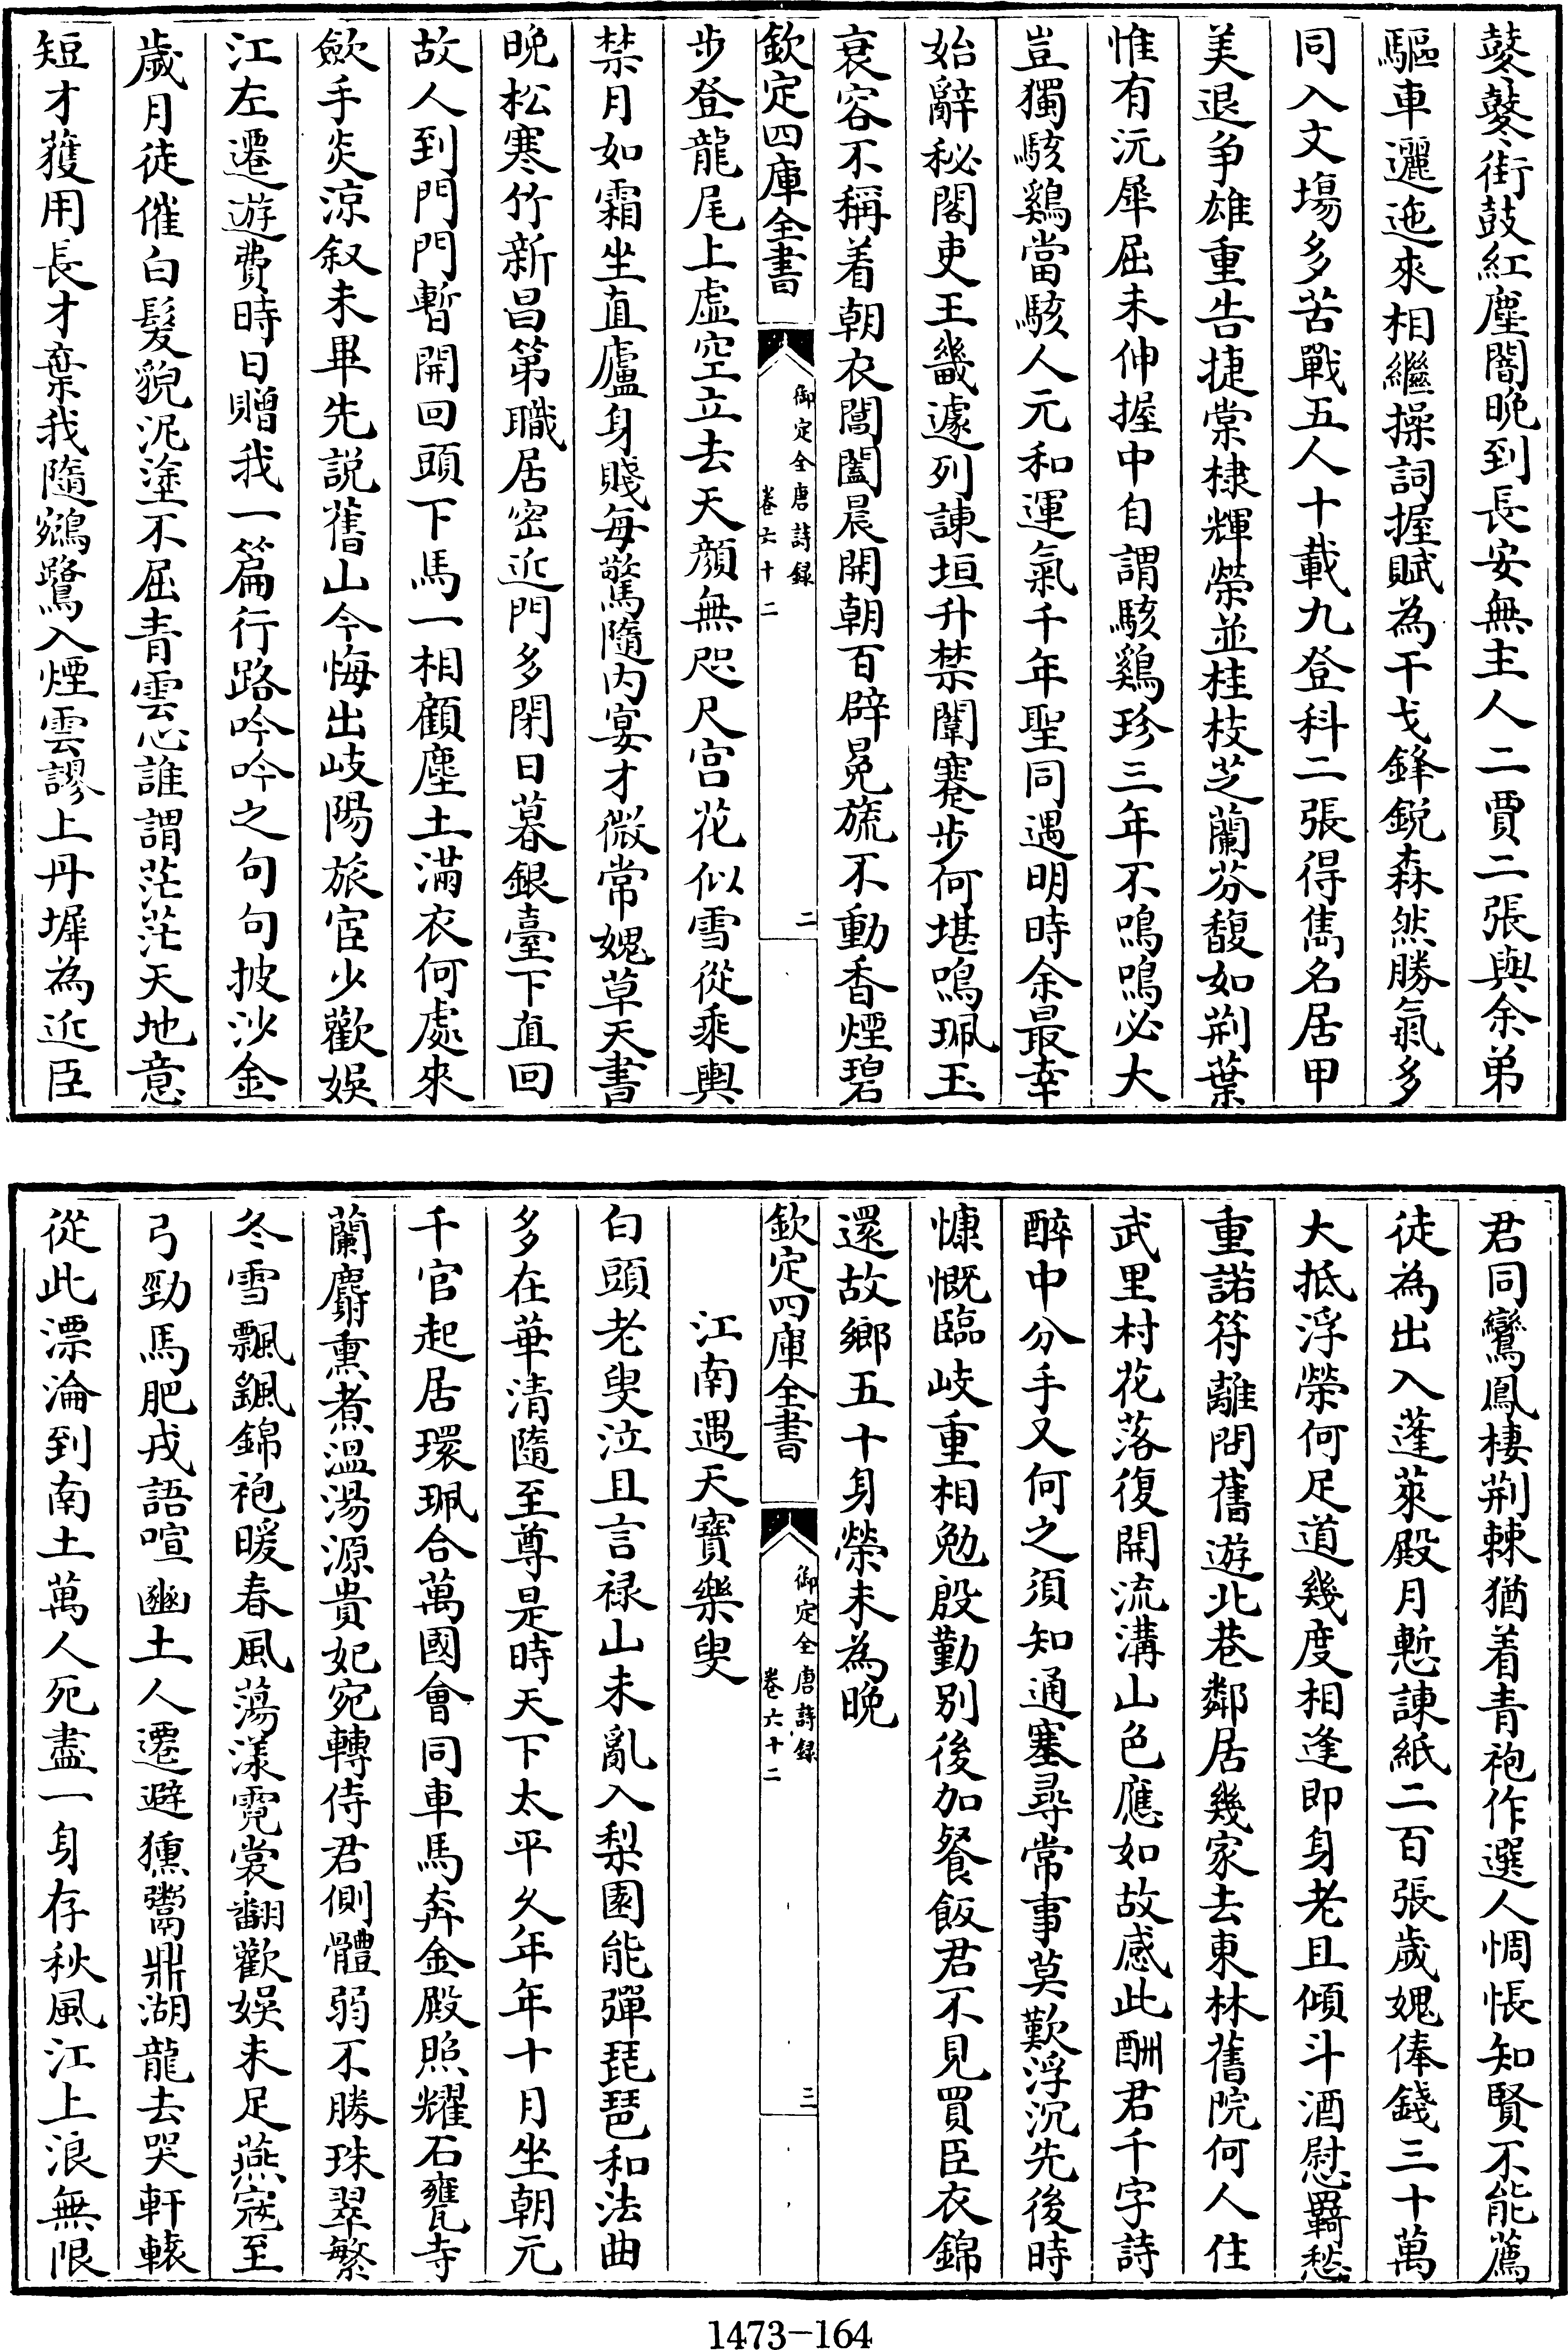 鼕鼕街鼓紅塵闇晚到長安無主人二賈二張與余弟
驅車邐迤來相繼操詞握賦為干戈鋒銳森然勝氣多
同入文場多苦戰五人十載九登科二張得雋名居甲
美退爭雄重告捷棠棣輝榮並桂枝芝蘭芬馥如荆葉
惟有沅犀屈未伸握中自謂駭鷄珍三年不鳴鳴必大
豈獨駭鷄當駭人元和運氣千年聖同遇明時余最幸
始辭秘閣吏王畿遽列諫垣升禁闈蹇步何堪鳴珮玉
衰容不稱着朝衣閶闔晨開朝百辟冕旒不動香煙碧
欽定四庫全書
御定全唐詩録
卷六十二
二
步登龍尾上虛空立去天顏無咫尺宫花似雪從乘輿
禁月如霜坐直廬身賤每驚隨内宴才微常媿草天書
晚松寒竹新昌第職居密近門多閉日暮銀臺下直回
故人到門門暫開回頭下馬一相顧塵土滿衣何處來
歛手炎涼叙未畢先説舊山今悔出岐陽旅宦少歡娛
江左遷遊費時日贈我一篇行路吟吟之句句披沙金
歲月徒催白髮貌泥塗不屈青雲心誰謂茫茫天地意
短才獲用長才棄我隨鵷鷺入煙雲謬上丹墀為近臣
君同鸞鳳棲荆棘猶着青袍作選人惆悵知賢不能薦
徒為出入蓬萊殿月慙諫紙二百張歲媿俸錢三十萬
大抵浮榮何足道幾度相逢即身老且傾斗酒慰羇愁
重話符離問舊遊北巷鄰居幾家去東林舊院何人住
武里村花落復開流溝山色應如故感此酬君千字詩
醉中分手又何之須知通塞尋常事莫歎浮沉先後時
慷慨臨岐重相勉殷勤别後加餐飯君不見買臣衣錦
還故鄉五十身榮未為晚
欽定四庫全書
御定全唐詩録
卷六十二
三
江南遇天寶樂叟
白頭老叟泣且言禄山未亂入梨園能彈琵琶和法曲
多在華清隨至尊是時天下太平久年年十月坐朝元
千官起居環珮合萬國會同車馬奔金殿照耀石甕寺
蘭麝熏煮溫湯源貴妃宛轉侍君側體弱不勝珠翠繁
冬雪飄颻錦袍暖春風蕩漾霓裳翻歡娛未足燕寇至
弓勁馬肥戎語喧豳土人遷避獯鬻鼎湖龍去哭軒轅
從此漂淪到南土萬人死盡一身存秋風江上浪無限
1473-164